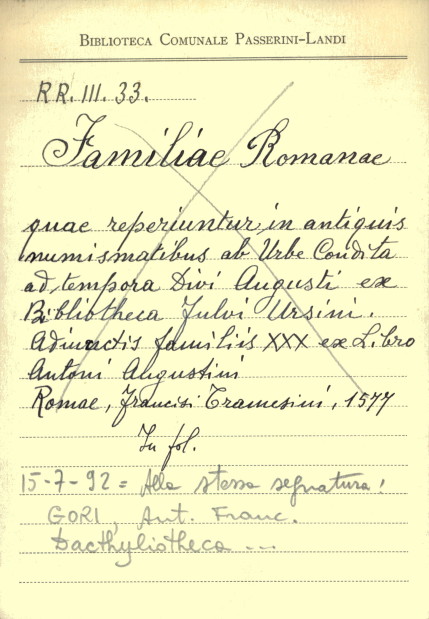 BIBLIOTECA COMUNALE PASSERINI-LANDI
RR. III. 33.
Familiae Romanae
quae reperiuntur in antiquis
numismatibus ab Urbe Condita
ad tempora Divi Augusti ex
Bibliotheca Fulvi Ursini.
Adiunctis familiis XXX ex Libro
Antoni Augustini
Romae, Francisi Tramesini, 1577
In fol.
15-7-92 = Alla stessa segnatura!
GORI, Ant. Franc.
Dacthyliotheca ...